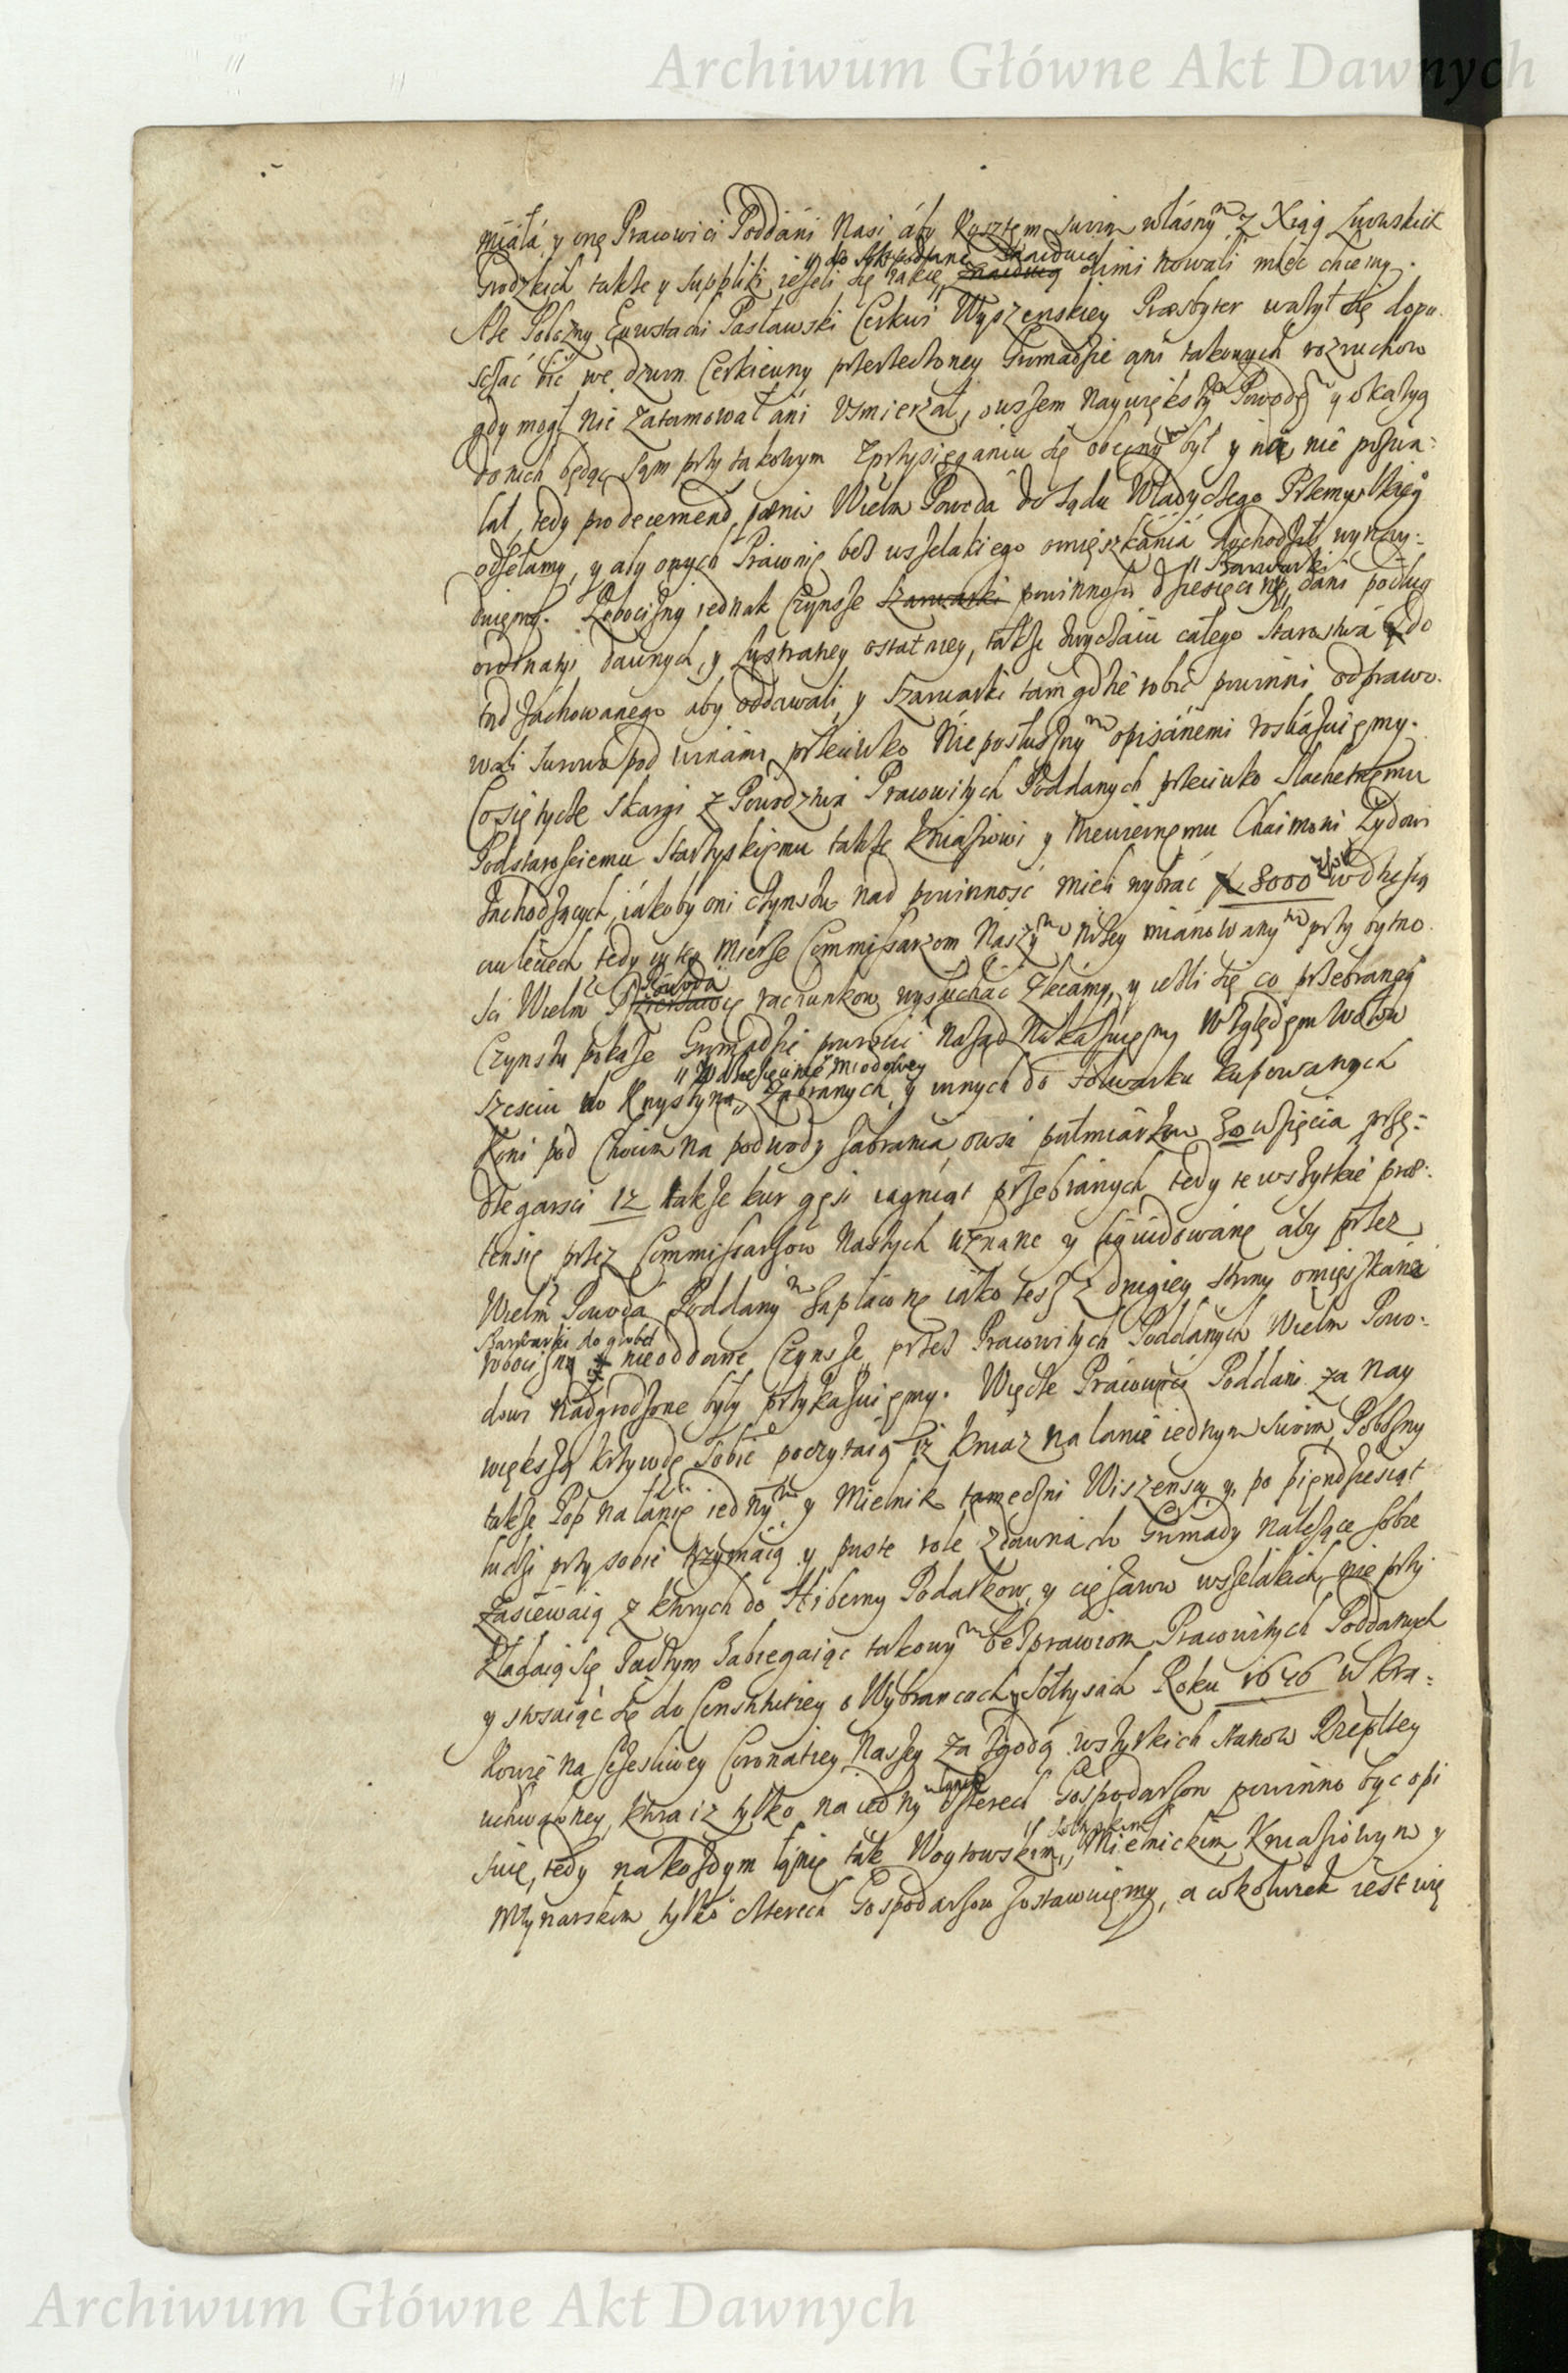 Archiwum Główne Akt Dawnych
miała, y onę Pracowici Poddani Nasi aby Kosztem swym własnym z Xiąg Lwowskich
do Skrzydlane znaiduią
Grodzkich także y Suppliki ieżeli się takie znaiduią eliminowali mieć chcemy.
Ale Pobożny Eustachi Pasławski Cerkwi Wyszenskiey Præsbyter ważył się dopu-
sczać bić we dzwn Cerkiewny przerzeczoney Gromadzie ani takowych rozruchow
gdy mogł nie zatamował ani Usmierzał, owszem Naywiększym Powodem y okazyą
do nich będąc sam przy takowym Zprzysięganiu się obecnym był y nic nie persua-
łał, tedy pro decernend. pœnis Wielm Powoda do Sądu Władyczego Przemyskiego
odsełamy, y aby onych Prawnie bez wszelakiego omięszkania dochodził wynay-
Szarwarki
duięmy. Robocizny iednak Czynsze Szarwarki powinności dziesięciny, dani podług
ordinatij dawnych, y Lustratiey ostatniey, także zwyczaiu całego Starostwa do
tąd zachowanego aby oddawali, y Szarwarki tam gdzie robić powinni odprawo-
wali surowo pod winami przeciwko Nieposłusznym opisanemi roskazuięmy.
Co się tycze Skargi z Powodztwa Pracowitych Poddanych przeciwko Slachetnemu
Podstarosciemu Starzyskiemu także Kniaziowi y Niewiernemu Chaimowi Żydowi
zachodzących, iakoby oni czynszu nad powinność mieli wybrać 8000 w dziesią
ciu leciech tedy w tey mierze Commissarzom Naszym niżey mianowanym przy bytno-
Powoda
ści Wielm rachunkow wysłuchać Zlecamy, y ieśli się co przebranego
Czynszu pokaże Gromadzie powrocić nazad Nakazuięmy Względem Wołow
Wdziesięcinie miodowey
szesciu do Krystyna, Zabranych, y innych do folwarku kupowanych
Koni pod Chocim na podwody zabrania owsa pułmiarkow 30 wzięcia przę-
dze garsci 12 także kur gęsi iagniąt przebranych tedy te wszytkie præ-
tensię przez Commissarzow Naszych uznane y liquidowane aby przez
Wielm Powoda Poddanym zapłacone iako tesz z drugiey strony omięszkania
Szarwarki do grobel
robocizny nieoddane Czynsze przez Pracowitych Poddanych Wielm Powo-
dowi nadgrodzone były przykazuięmy. Więcze Pracowici Poddani za nay
większą krzywdę sobie poczytaią iż kniaz na łanie iednym swoim, Pobożny
także Pop na łanie iednym y Mielnik tameczni Wiszenscy, po pięndziesiąt
ludzi przy sobie trzymaią y puste role zdawna do Gromady należące sobie
zasiewaią z ktorych do Hiberny Podatkow, y ciężarow wszelakich nie przy
kładaią się, Zaczym zabiegaiąc takowym bezprawiom Pracowitych Poddanych
y stosuiąc się do Constitutiey o Wybrancach y Sołtysach Roku 1676 w Kra-
kowie na szczesliwey Coronatiey Naszey za zgodą wszytkich stanow Rzeplitey
łanie
uchwaloney, ktora iz tylko na iednym czterech Gospodarzow powinno być opi
Sołtyskim
suie, tedy na kożdym łanie tak Woytowskim, Mielnickim, Kniaziowym y
Młynarskim tylko czterech Gospodarzow zostawuięmy, a cokolwiek iest wię
Archiwum Główne Akt Dawnych